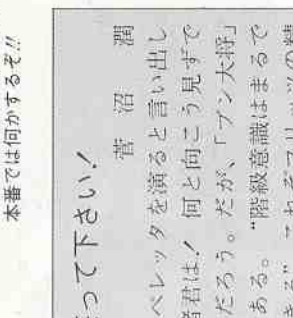 本番では何かするぞ!!
って下さい!
菅沼潤
ペレッタを演ると言い出し
者君は! 何と向こう見ずで
だろう。だが、「ブン大将」
ある。“階級意識はまるで